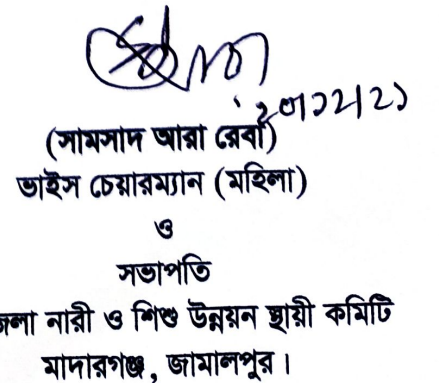 ২০।১২।২১
(সামসাদ আরা রেবা)
ভাইস চেয়ারম্যান (মহিলা)
ও
সভাপতি
জলা নারী ও শিশু উন্নয়ন স্থায়ী কমিটি
মাদারগঞ্জ, জামালপুর।